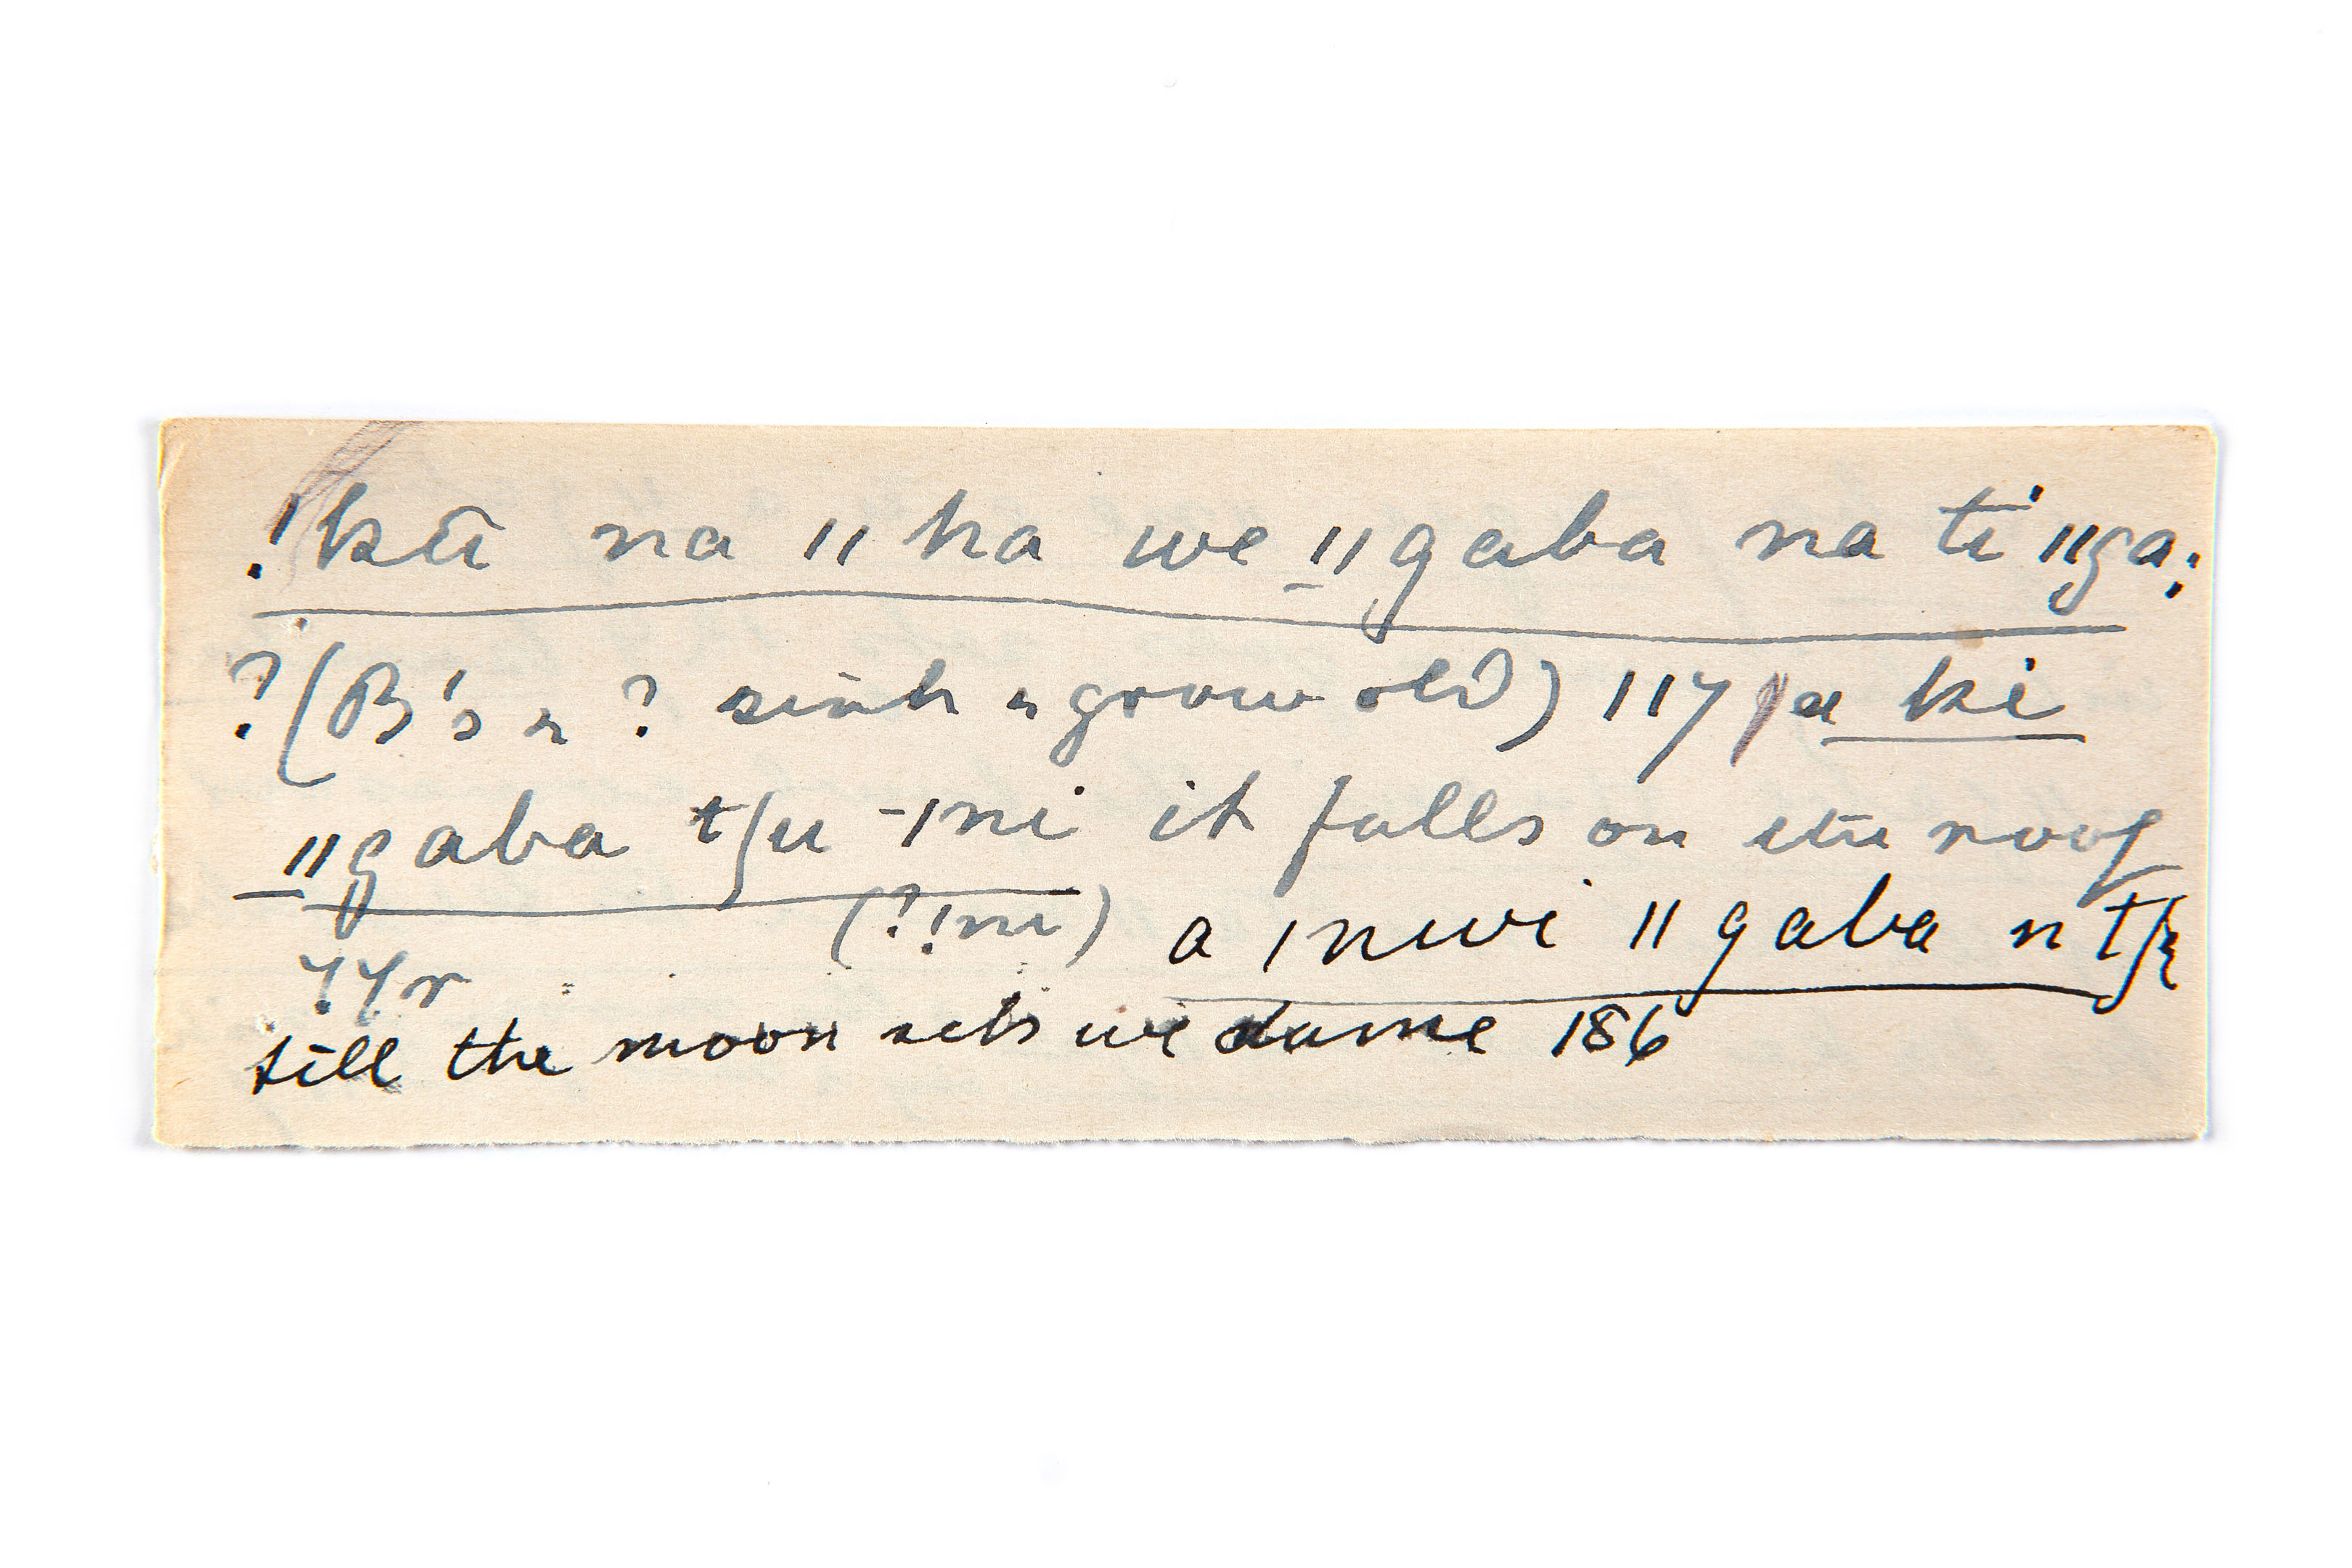 !kū na ǁ ha we ǁgaba na ti ǁga;
?(B's n ? sinh n grow old) 117 a ki
ǁgaba tʃu -ǀni it falls on the roof
77r (?!ni) a ǀnwi ǁgaba n tʃɛ
till the moon sets we dame 186